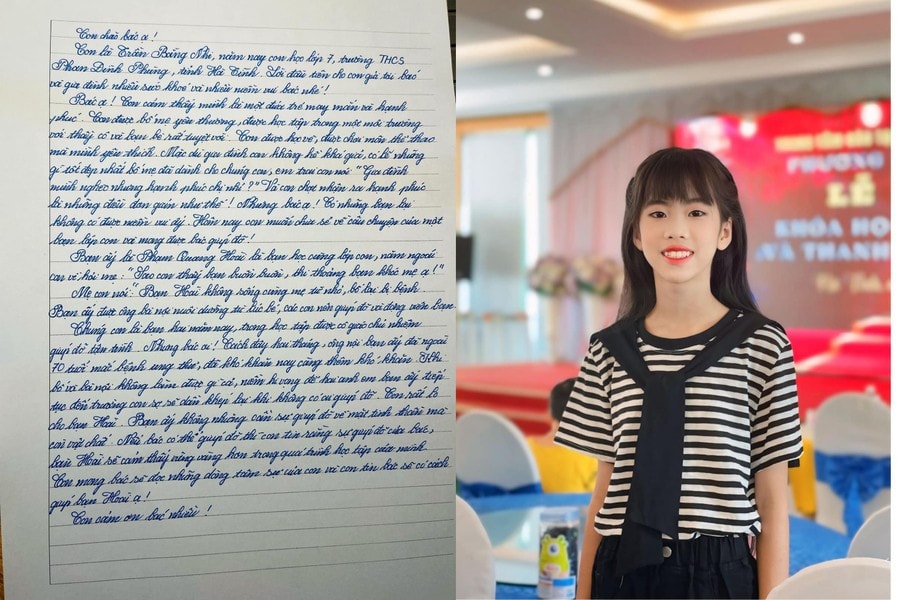 Con chào bác ạ!
Con là Trần Băng Nhi, năm nay con học lớp 7, trường THCS
Phan Đình Phùng, tỉnh Hà Tĩnh. Lời đầu tiên cho con gửi tới bác
và gia đình nhiều sức khoẻ và nhiều niềm vui bác nhé!
Bác ạ! Con cảm thấy mình là một đứa trẻ may mắn và hạnh
phúc. Con được bố mẹ yêu thương, được học tập trong một môi trường
với thầy cô và bạn bè rất tuyệt vời. Con được học vẽ, được chơi môn thể thao
mà mình yêu thích. Mặc dù gia đình con không hề khá giả, có lẽ những
gì tốt đẹp nhất bố mẹ đã dành cho chúng con, em trai con nói: "Gia đình
mình nghèo nhưng hạnh phúc chị nhỉ?" Và con chợt nhận ra hạnh phúc
là những điều đơn giản như thế! Nhưng bác ạ! Có những bạn lại
không có được niềm vui ấy. Hôm nay con muốn chia sẻ về câu chuyện của một
bạn lớp con và mong được bác giúp đỡ!
Bạn ấy là Phạm Quang Hoài là bạn học cùng lớp con, năm ngoái
con về hỏi mẹ: "Sao con thấy bạn buồn buồn, thi thoảng bạn khóc mẹ ạ!"
Mẹ con nói: "Bạn Hoài không sống cùng mẹ từ nhỏ, bố lại bị bệnh.
Bạn ấy được ông bà nội nuôi dưỡng từ lúc bé, các con nên giúp đỡ và động viên bạn.
Chúng con là bạn hai năm nay, trong học tập được cô giáo chủ nhiệm
giúp đỡ tận tình. Nhưng bác ơi! Cách đây hai tháng, ông nội bạn ấy đã ngoài
70 tuổi mắc bệnh ung thư, đã khó khăn nay càng thêm khó khăn. Khi
bố và bà nội không làm được gì cả, niềm hi vọng để hai anh em bạn ấy tiếp
tục đến trường con sợ sẽ dần khép lại khi không có sự giúp đỡ. Con rất lo
cho bạn Hoài. Bạn ấy không những cần sự giúp đỡ về mặt tinh thần mà
cả vật chất. Nếu bác có thể giúp đỡ thì con tin rằng sự giúp đỡ của bác,
bạn Hoài sẽ cảm thấy vững vàng hơn trong quá trình học tập của mình.
Con mong bác sẽ đọc những dòng tâm sự của con và con tin bác sẽ có cách
giúp bạn Hoài ạ!
Con cảm ơn bác nhiều!
PHƯƠNG
LỄ
KHÓA HỌ
VÀ THANH